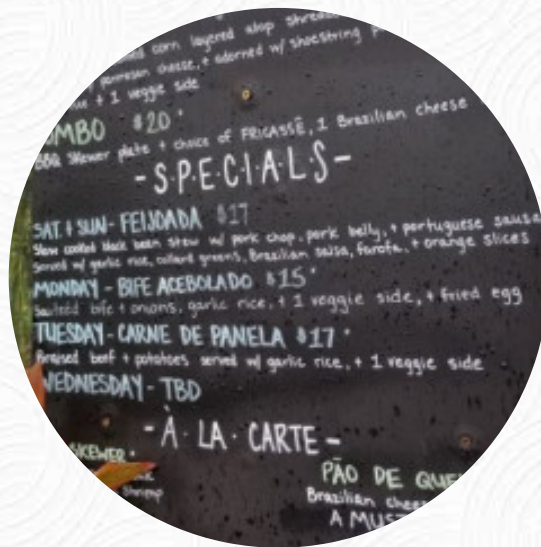 corn layered atop
parmesan cheese, + adorned w/ shoestring
+ 1 veggie side
MBO $20*
BBQ Skewer plate + choice of FRICASSÊ, 1 Brazilian cheese
-S·P·E·C·I·A·L·S-
SAT. + SUN - FEIJOADA $17
Slow cooked black bean stew w/ pork chop, pork belly, + portuguese sausa
Served w/ garlic rice, collard greens, Brazilian salsa, farofa, + orange slices
MONDAY - BIFE ACEBOLADO $15*
Sauteed bife + onions, garlic rice, + 1 veggie side, + fried egg
TUESDAY - CARNE DE PANELA $17*
Braised beef + potatoes served w/ garlic rice, + 1 veggie side
WEDNESDAY - TBD
-À·LA·CARTE-
SKEWER*
shrimp
PÃO DE QUE
Brazilian chees
A MUST